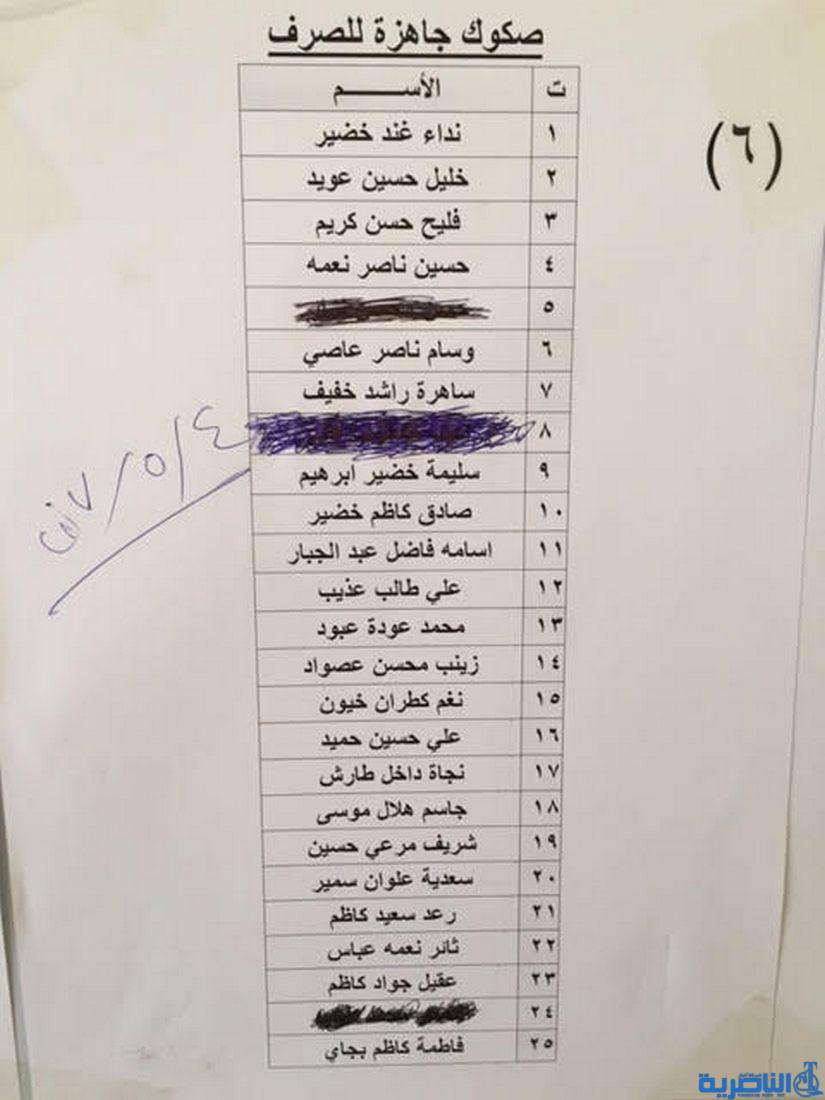 صكوك جاهزة للصرف
(٦)
ت الأســـــم
١ نداء غند خضير
٢ خليل حسين عويد
٣ فليح حسن كريم
٤ حسين ناصر نعمه
٥
٦ وسام ناصر عاصي
٧ ساهرة راشد خفيف
٨
٩ سليمة خضير ابرهيم
١٠ صادق كاظم خضير
١١ اسامه فاضل عبد الجبار
١٢ علي طالب عذيب
١٣ محمد عودة عبود
١٤ زينب محسن عصواد
١٥ نغم كطران خيون
١٦ علي حسين حميد
١٧ نجاة داخل طارش
١٨ جاسم هلال موسى
١٩ شريف مرعي حسين
٢٠ سعدية علوان سمير
٢١ رعد سعيد كاظم
٢٢ ثائر نعمه عباس
٢٣ عقيل جواد كاظم
٢٤
٢٥ فاطمة كاظم بجاي
٤/٥/
الناصرية